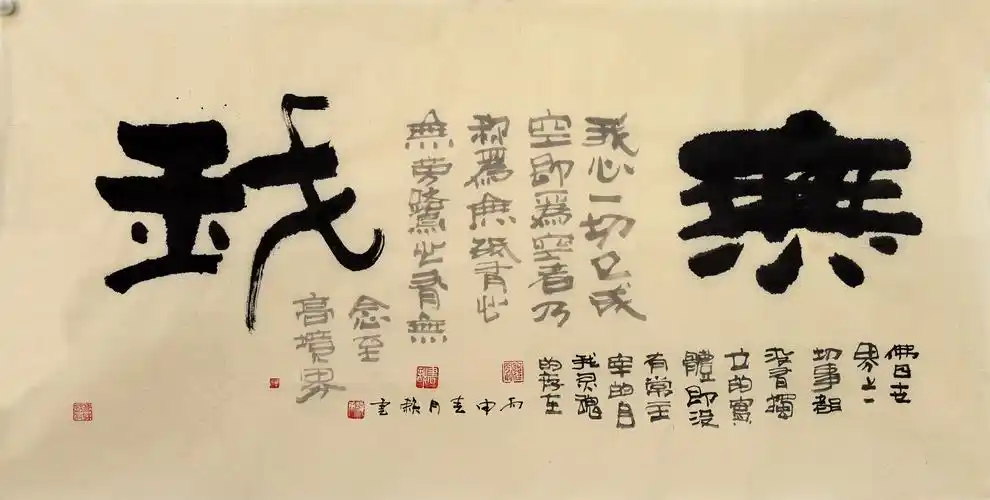 無
我
佛曰世
界上一
切事都
沒有獨
立的實
體即沒
有常主
宰的自
我灵魂
的存在
我心一切已成
空即爲空者乃
称爲無我有此
無此有無
念至
高境界
丙申春月